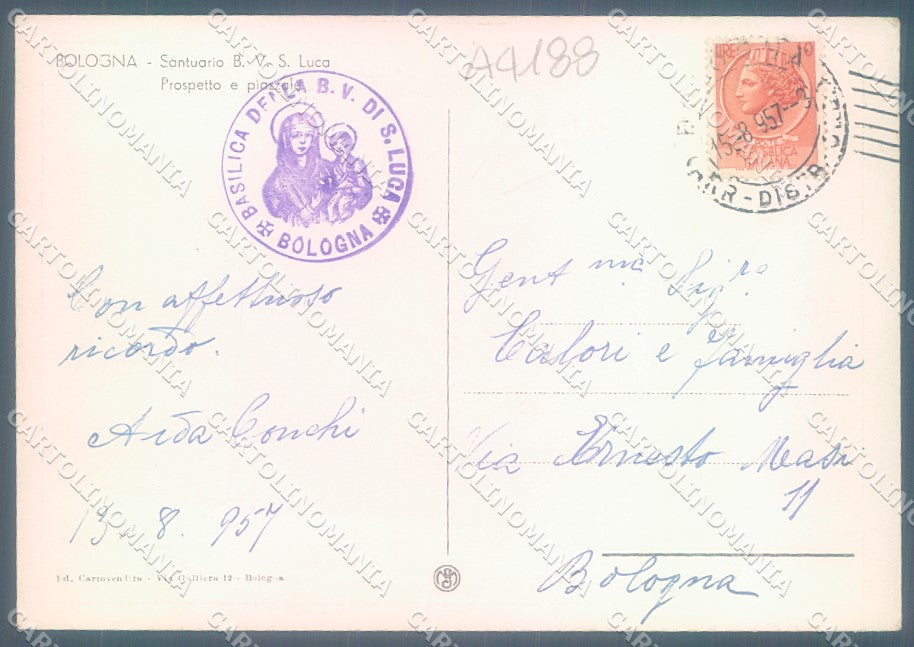 BOLOGNA - Santuario B. V. S. Luca
Prospetto e piazzale
A4188
BASILICA DELLA B. V. DI S. LUCA
BOLOGNA
LIRE 10
15-8.957
ARR-DISTR
Con affettuoso
ricordo.
Aida Conchi
13 8. 957
Gent ma Sig.ra
Calori e famiglia
Via Ernesto Masi
11
Bologna
Ed. Cartovendita - Via Galliera 12 - Bologna
CARTOLINOMANIA